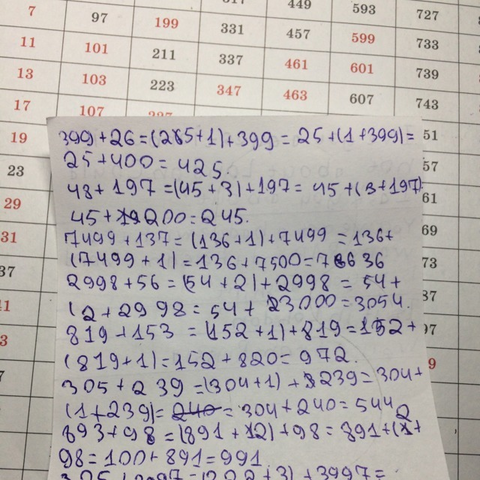 7 97 199 449 593 727
11 101 211 331 457 599 733
13 103 223 337 461 601 739
17 107 347 463 607 743
19 399+26=(265+1)+399=25+(1+399)= 51
23 25+400=425.
29 48+197=(45+3)+197=45+(3+197)
31 45+200=245.
37 7499+137=(136+1)+7499=136+ 73
(7499+1)=136+7500=7636
2998+56=(54+2)+2998=54+ 87
(2+2998=54+3000=3054.
819+153=(152+1)+819=152+ 97
(819+1)=152+820=972.
305+239=(304+1)+239=304+ 9
(1+239)=240=304+240=544
893+98=(891+2)+98=891+(2+
98=100+891=991.
+3)+3997=